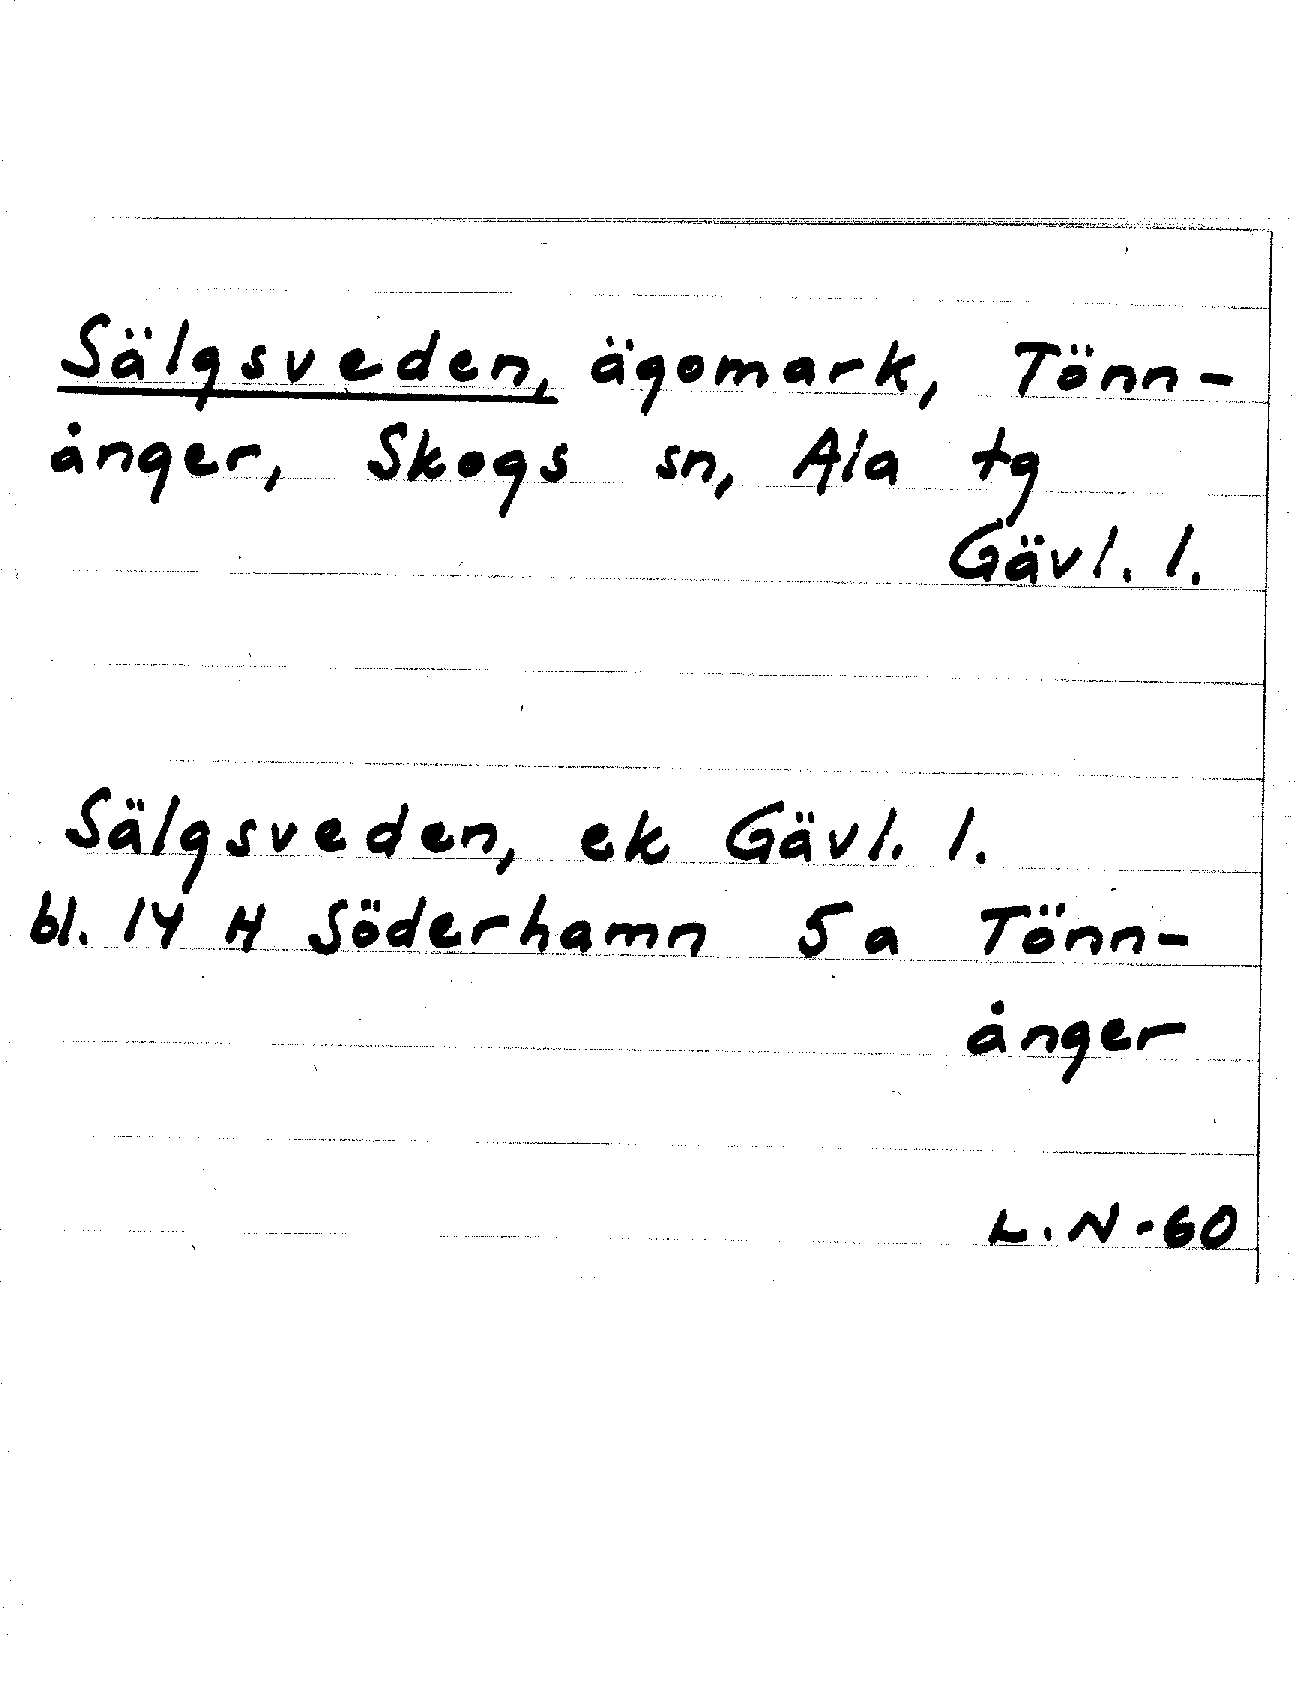 Sälgsveden, ägomark, Tönn-
ånger, Skogs sn, Ala tg
Gävl. l.
Sälgsveden, ek Gävl. l.
bl. 14 H Söderhamn 5 a Tönn-
ånger
L.N-60